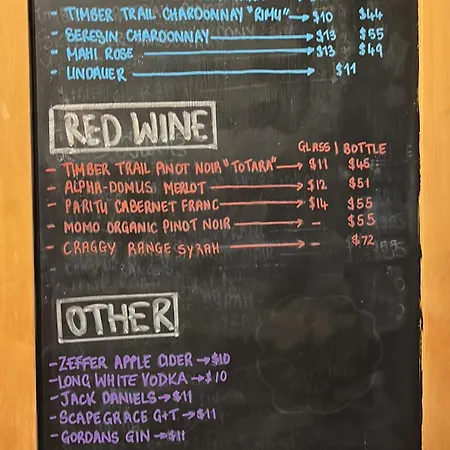 - TIMBER TRAIL CHARDONNAY "RIMU" → $10 $44
- BERESIN CHARDONNAY → $13 $55
- MAHI ROSE → $13 $49
- LINDAUER → $11
RED WINE
GLASS | BOTTLE
- TIMBER TRAIL PINOT NOIR "TOTARA" → $11 $45
- ALPHA-DOMUS MERLOT → $12 $51
- PARITU CABERNET FRANC → $14 $55
- MOMO ORGANIC PINOT NOIR → - $55
- CRAGGY RANGE SYRAH → - $72
OTHER
- ZEFFER APPLE CIDER → $10
- LONG WHITE VODKA → $10
- JACK DANIELS → $11
- SCAPEGRACE G+T → $11
- GORDANS GIN → $11